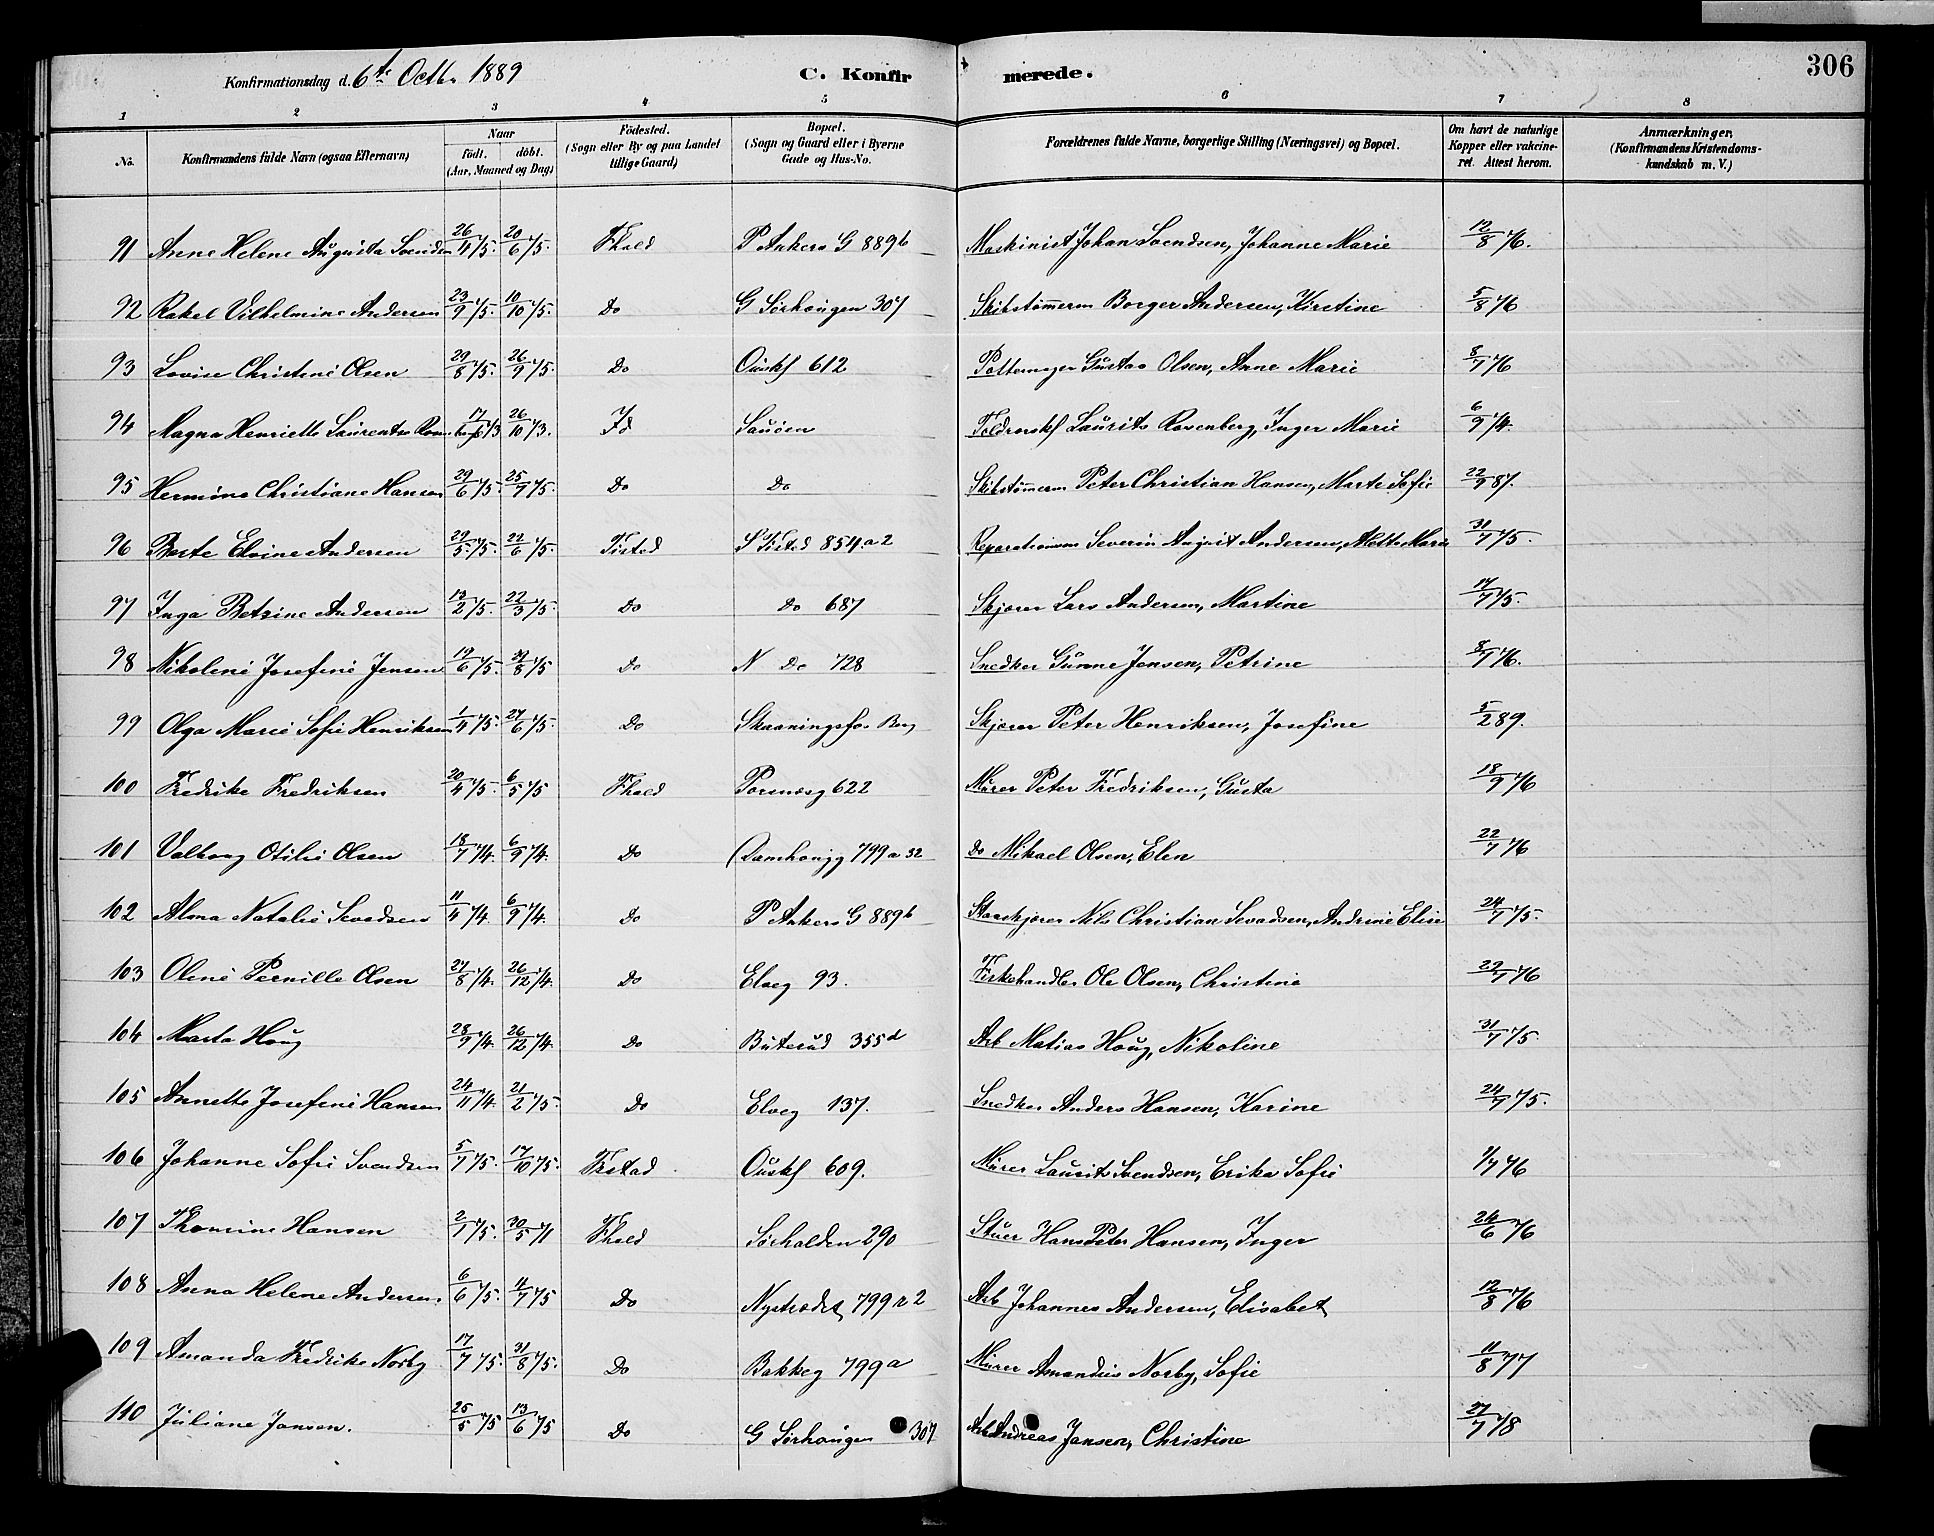 306
Konfirmationsdag d. 6te Octbr 1889
C. Konfirmerede.
1 2 3 4 5 6 7 8
No. Konfirmandens fulde Navn (ogsaa Efternavn) Naar födt. döbt. (Aar, Maaned og Dag) Födested. (Sogn eller By og paa Landet tillige Gaard) Bopæl. (Sogn og Gaard eller i Byerne Gade og Hus-No. Forældrenes fulde Navne, borgerlige Stilling (Næringsvei) og Bopæl. Om havt de naturlige Kopper eller vakcineret. Attest herom. Anmærkninger. (Konfirmandens Kristendomskundskab m. V.)
91 Anne Helene Augusta Svendsen 26/4 75. 20/6 75. Fhald P Ankers G 889b Maskinist Johan Svendsen, Johanne Marie 12/8 76.
92 Rakel Vilhelmine Andersen 23/9 75. 10/10 75. Do G Sörhaugen 307 Skibstömerm Borger Andersen, Kirstine 5/8 76
93 Lovise Christine Olsen 29/8 75. 26/9 75. Do Ouskf 612 Pottemager Gustav Olsen, Anne Marie 8/7 76
94 Magna Henriette Laurentze 17/ 73 26/10 73. Id Sauöen Laurits Rosenberg, Inger Marie 6/9 74.
95 Hermine Christiane Hansen 29/6 75. 25/7 75. Do Do Skibstömerm Peter Christian Hansen, Marte Sofie 22/9 87.
96 Berte Elvine Andersen 29/5 75. 27/6 75. Tisted S Tisted 854.a2 Reparationsm Severin August Andersen, Mette Marie 31/7 75.
97 Inga Betzine Andersen 12/2 75. 22/3 75. Do Do 687 Skjærer Lars Andersen, Martine 17/7 75.
98 Nikoline Josefine Jensen 19/6 75. 29/8 75 Do N Do 728 Snedker Gunne Jensen, Petrine 8/7 76.
99 Olga Marie Sofie Henriksen 1/4 75. 27/6 75. Do Skaaningsfos Berg Skjærer Peter Henriksen, Josefine 5/2 89.
100 Fredrike Fredriksen 20/4 75. 6/5 75 Fhald Porsnæsg 622 Murer Peter Fredriksen, Gusta 18/9 76
101 Valborg Otilie Olsen 18/7 74. 6/9 74. Do Damhaugg 799a 32 Do Mikael Olsen, Elen 22/7 76
102 Alma Natalie Sevadsen 11/4 74. 6/9 74. Do P Ankers G 889b Staaskjærer Nils Christian Sevadsen, Andrine Elise 24/7 75.
103 Oline Pernille Olsen 27/8 74. 26/12 74. Do Elveg 93. Fiskehandler Ole Olsen, Christine 29/7 76
104 Marta Houg 28/9 74. 26/12 74. Do Buterud 355d Arb Matias Houg, Nikoline 31/7 75.
105 Annette Josefine Hansen 24/11 74. 21/2 75. Do Elveg 137. Snedker Anders Hansen, Karine 24/7 75.
106 Johanne Sofie Svendsen 5/7 75. 17/10 75. Ouskf 609. Murer Laurits Svendsen, Erika Sofie 1/7 76
107 Thomine Hansen 2/1 75. 30/5 71 Fhald Sörhalden 290 Stuer Hans Peter Hansen, Inger 24/6 76
108 Anna Helene Andersen 6/6 75. 11/7 75 Do Nystrædet 799r2 Arb Johannes Andersen, Elisabet 12/8 76
109 Amanda Fredrike Norby 17/7 75. 31/8 75. Do Bakkeg 799a Murer Amandus Norby, Sofie 11/8 77
110 Juliane Jansen. 25/5 75 13/6 75 Do G Sörhaugen 307 Arb Andreas Jansen, Christine 27/7 78